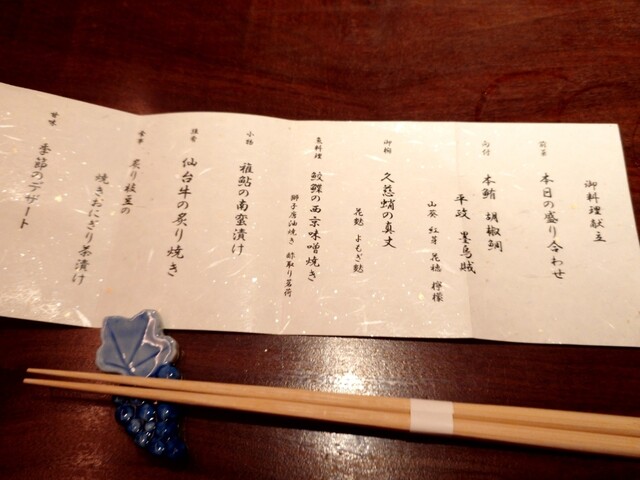 御料理献立
前菜
本日の盛り合わせ
向付
本鮪 胡椒鯛
平政 墨烏賊
山葵 紅芽 花穂 檸檬
御椀
久慈蛸の真丈
花麩 よもぎ麩
魚料理
鮫鰈の西京味噌焼き
獅子唐油焼き 酢取り茗荷
小物
稚鮎の南蛮漬け
強肴
仙台牛の炙り焼き
食事
炙り枝豆の
焼きおにぎり茶漬け
甘味
季節のデザート